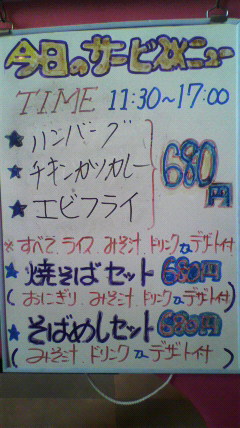 今日のサービスメニュー
TIME 11:30~17:00
★ ハンバーグ
★ チキンカツカレー
★ エビフライ
680円
※すべて、ライス、みそ汁、ドリンク or デザート付
★ 焼そばセット 680円
(おにぎり、みそ汁、ドリンク or デザート付)
★ そばめしセット 680円
(みそ汁、ドリンク or デザート付)